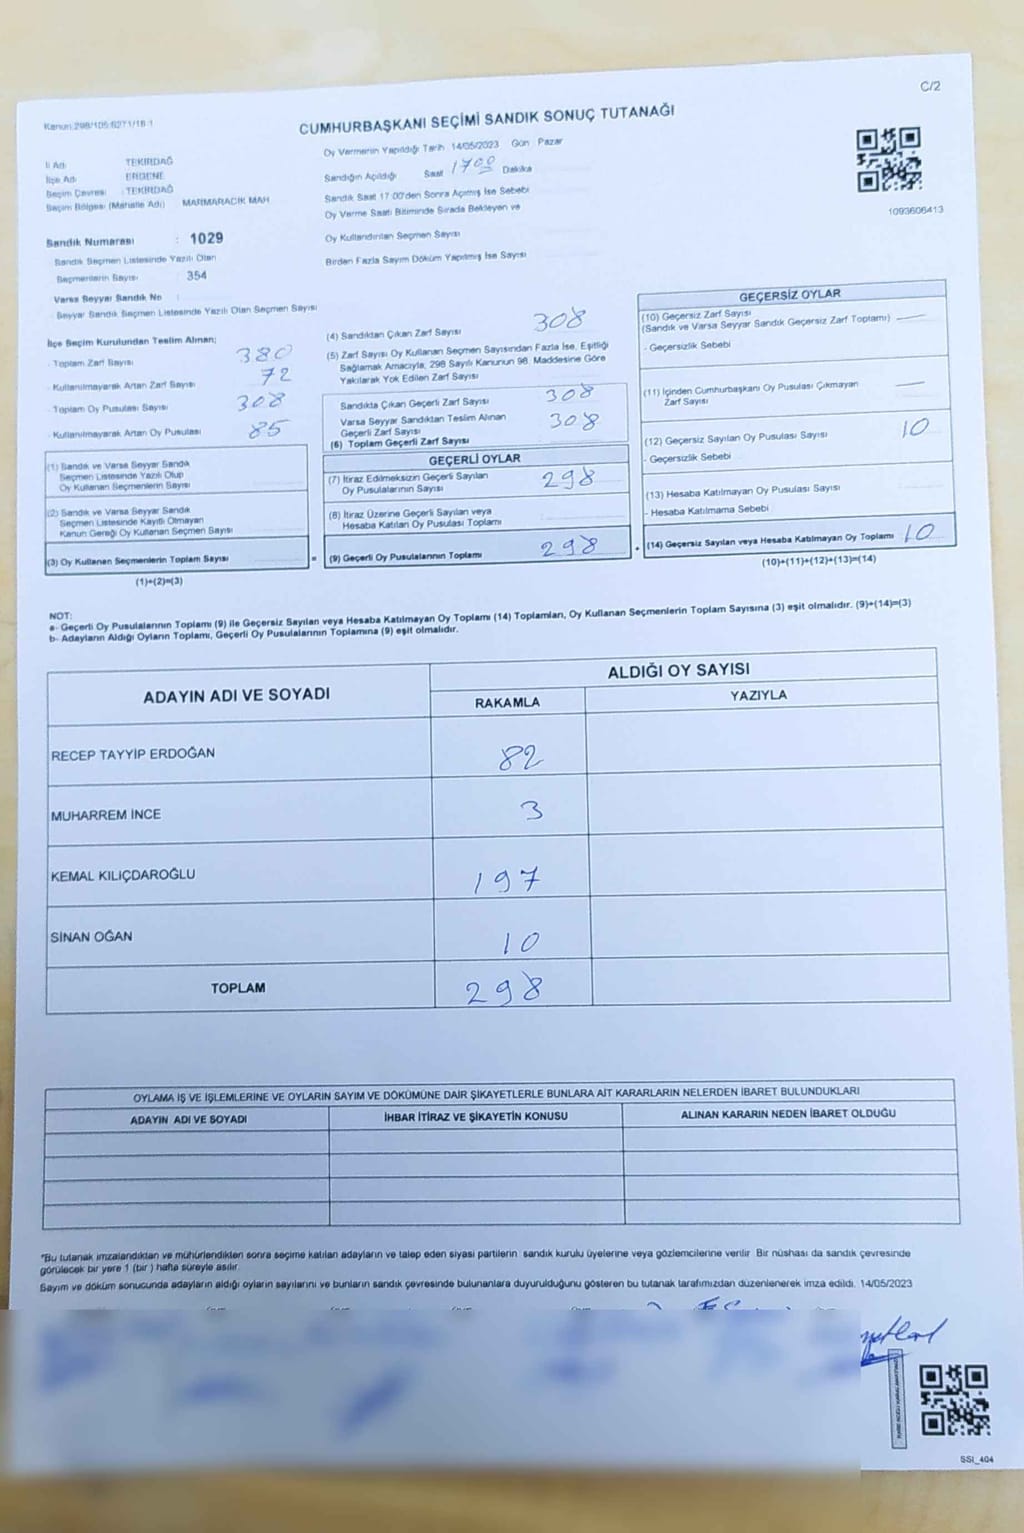 C/2
Kanun:298/105:6271/18:1
CUMHURBAŞKANI SEÇİMİ SANDIK SONUÇ TUTANAĞI
İl Adı TEKİRDAĞ
İlçe Adı ERGENE
Seçim Çevresi : TEKİRDAĞ
Seçim Bölgesi (Mahalle Adı) MARMARACIK MAH
Oy Vermenin Yapıldığı Tarih 14/05/2023 Gün : Pazar
Sandığın Açıldığı Saat 17 00 Dakika
Sandık Saat 17:00'den Sonra Açılmış İse Sebebi
Oy Verme Saati Bitiminde Sırada Bekleyen ve
Oy Kullandırılan Seçmen Sayısı
Birden Fazla Sayım Döküm Yapılmış İse Sayısı
1093606413
Sandık Numarası : 1029
Sandık Seçmen Listesinde Yazılı Olan
Seçmenlerin Sayısı : 354
Varsa Seyyar Sandık No
Seyyar Sandık Seçmen Listesinde Yazılı Olan Seçmen Sayısı
İlçe Seçim Kurulundan Teslim Alınan;
- Toplam Zarf Sayısı 380
- Kullanılmayarak Artan Zarf Sayısı 72
- Toplam Oy Pusulası Sayısı 308
- Kullanılmayarak Artan Oy Pusulası 85
(1) Sandık ve Varsa Seyyar Sandık
Seçmen Listesinde Yazılı Olup
Oy Kullanan Seçmenlerin Sayısı
(2) Sandık ve Varsa Seyyar Sandık
Seçmen Listesinde Kayıtlı Olmayan
Kanun Gereği Oy Kullanan Seçmen Sayısı
(3) Oy Kullanan Seçmenlerin Toplam Sayısı
(1)+(2)=(3)
(4) Sandıktan Çıkan Zarf Sayısı 308
(5) Zarf Sayısı Oy Kullanan Seçmen Sayısından Fazla İse, Eşitliği
Sağlamak Amacıyla, 298 Sayılı Kanunun 98. Maddesine Göre
Yakılarak Yok Edilen Zarf Sayısı
Sandıkta Çıkan Geçerli Zarf Sayısı 308
Varsa Seyyar Sandıktan Teslim Alınan
Geçerli Zarf Sayısı 308
(6) Toplam Geçerli Zarf Sayısı
GEÇERLİ OYLAR
(7) İtiraz Edilmeksizin Geçerli Sayılan
Oy Pusulalarının Sayısı 298
(8) İtiraz Üzerine Geçerli Sayılan veya
Hesaba Katılan Oy Pusulası Toplamı
= (9) Geçerli Oy Pusulalarının Toplamı 298
GEÇERSİZ OYLAR
(10) Geçersiz Zarf Sayısı —
(Sandık ve Varsa Seyyar Sandık Geçersiz Zarf Toplamı)
- Geçersizlik Sebebi
(11) İçinden Cumhurbaşkanı Oy Pusulası Çıkmayan —
Zarf Sayısı
(12) Geçersiz Sayılan Oy Pusulası Sayısı 10
- Geçersizlik Sebebi
(13) Hesaba Katılmayan Oy Pusulası Sayısı
- Hesaba Katılmama Sebebi
+ (14) Geçersiz Sayılan veya Hesaba Katılmayan Oy Toplamı 10
(10)+(11)+(12)+(13)=(14)
NOT:
a- Geçerli Oy Pusulalarının Toplamı (9) ile Geçersiz Sayılan veya Hesaba Katılmayan Oy Toplamı (14) Toplamları, Oy Kullanan Seçmenlerin Toplam Sayısına (3) eşit olmalıdır. (9)+(14)=(3)
b- Adayların Aldığı Oyların Toplamı, Geçerli Oy Pusulalarının Toplamına (9) eşit olmalıdır.
ADAYIN ADI VE SOYADI
ALDIĞI OY SAYISI
RAKAMLA YAZIYLA
RECEP TAYYİP ERDOĞAN 82
MUHARREM İNCE 3
KEMAL KILIÇDAROĞLU 197
SİNAN OĞAN 10
TOPLAM 298
OYLAMA İŞ VE İŞLEMLERİNE VE OYLARIN SAYIM VE DÖKÜMÜNE DAİR ŞİKAYETLERLE BUNLARA AİT KARARLARIN NELERDEN İBARET BULUNDUKLARI
ADAYIN ADI VE SOYADI İHBAR İTİRAZ VE ŞİKAYETİN KONUSU ALINAN KARARIN NEDEN İBARET OLDUĞU
*Bu tutanak imzalandıktan ve mühürlendikten sonra seçime katılan adayların ve talep eden siyasi partilerin sandık kurulu üyelerine veya gözlemcilerine verilir. Bir nüshası da sandık çevresinde
görülecek bir yere 1 (bir ) hafta süreyle asılır.
Sayım ve döküm sonucunda adayların aldığı oyların sayılarını ve bunların sandık çevresinde bulunanlara duyurulduğunu gösteren bu tutanak tarafımızdan düzenlenerek imza edildi. 14/05/2023
SSI_404